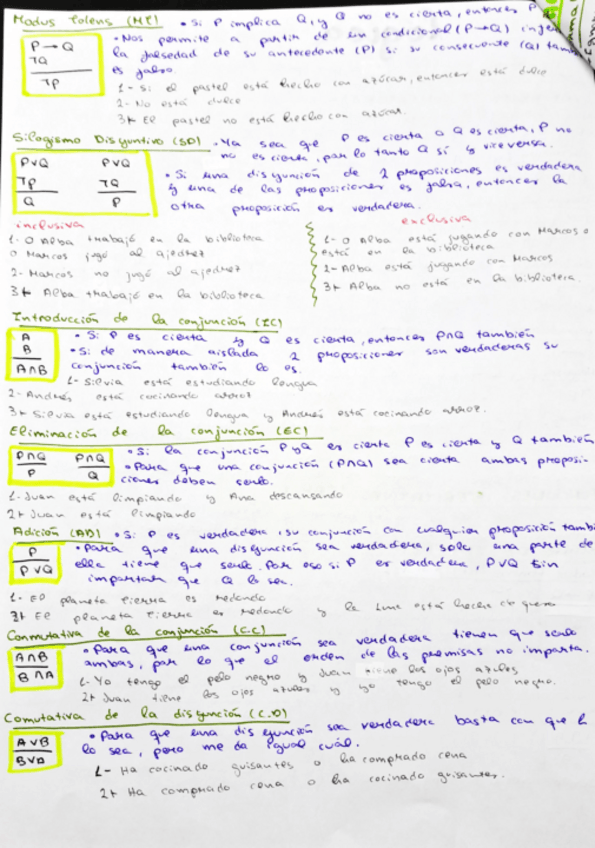 Modus Tolens (MT) • Si P implica Q, y Q no es cierta, entonces P
P → Q
¬Q
¬P
• Nos permite a partir de un condicional (P→Q)
la falsedad de su antecedente (P) si su consecuente (Q) tam
es falso.
1- Si el pastel está hecho con azúcar, entonces está dulce
2- No está dulce
3⊢ El pastel no está hecho con azúcar.
Silogismo Disyuntivo (SD) • Ya sea que P es cierta o Q es cierta, P no
no es cierta, por lo tanto Q sí y viceversa.
P∨Q P∨Q
¬P ¬Q
Q P
• Si una disyunción de 2 proposiciones es verdadera
y una de las proposiciones es falsa, entonces la
otra proposición es verdadera.
inclusiva
1- O Alba trabajó en la biblioteca
o Marcos jugó al ajedrez
2- Marcos no jugó al ajedrez
3⊢ Alba trabajó en la biblioteca
exclusiva
1- O Alba está jugando con Marcos o
está en la biblioteca
2- Alba está jugando con Marcos
3⊢ Alba no está en la biblioteca.
Introducción de la conjunción (IC)
A
B
A∩B
• Si P es cierta y Q es cierta, entonces P∩Q también
• Si de manera aislada 2 proposiciones son verdaderas su
conjunción también lo es.
1- Silvia está estudiando lengua
2- Andrés está cocinando arroz
3⊢ Silvia está estudiando lengua y Andrés está cocinando arroz.
Eliminación de la conjunción (EC)
P∩Q P∩Q
P Q
• Si la conjunción P y Q es cierta P es cierta y Q también
• Para que una conjunción (P∩Q) sea cierta ambas proposi-
ciones deben serlo.
1- Juan está limpiando y Ana descansando
2⊢ Juan está limpiando
Adición (AD) • Si P es verdadera, su conjunción con cualquier proposición tambi
P
P∨Q
• Para que una disyunción sea verdadera, solo una parte de
ella tiene que serlo. Por eso si P es verdadera, P∨Q sin
importar que Q lo sea.
1- El planeta tierra es redondo
3⊢ El planeta tierra es redondo y la luna está hecha de queso
Conmutativa de la conjunción (C.C)
A∩B
B∩A
• Para que una conjunción sea verdadera tienen que serlo
ambas, por lo que el orden de las premisas no importa.
1- Yo tengo el pelo negro y Juan tiene los ojos azules
2⊢ Juan tiene los ojos azules y yo tengo el pelo negro.
Comutativa de la disyunción (C.D)
A∨B
B∨A
• Para que una disyunción sea verdadera basta con que
lo sea, pero me da igual cuál.
1- Ha cocinado guisantes o ha comprado cena
2⊢ Ha comprado cena o ha cocinado guisantes.